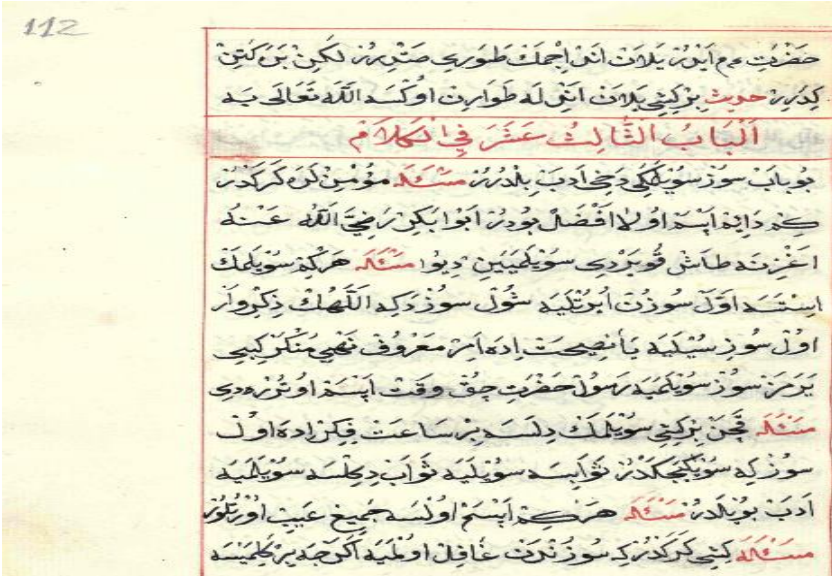 112
حَضْرَتِ عم اَيْدُرْ يِلَانْ اَتِنْ اِچْمَكْ طَوَرِى صَتْمِ رُزْ لٰكِنْ بَنْ كَتِنْ
كِدَرِرْ حديث بِرْ كِشِى يِلَانْ اَتِى لَه طَوَارِنْ اوُكْسَه اللّٰه تَعَالَى يَه
اَلْبَابُ الثَّالِثُ عَشَرَ فِى الْكَلَامْ
بوُ بَابْ سُوزْ سُويْلَمَكِى دَخِى اَدَبِ بِلْدُرُرْ مَسْئَلَه مُؤْمِنْ لَرَه كَرَكْدُرْ
كِمْ دَائِمْ اَپْسَمْ اوُلَا اَفْضَلْ بوُدُرْ اَبُوا بَكِرْ رَضِىَ اللّٰهُ عَنْهُ
اغْزِنَه طَاشْ قُويَرْدِى سُويْلَمَيَينِ دِيوُ مَسْئَلَه هَرْكِمْ سُويْلَمَكْ
اِسْتَسَه اَوَّلْ سُوزُنْ اُيرْتْلَيَه شُولْ سُوزْدَكِه اَللّٰهُكْ ذِكْرِ وَارْ
اوُلْ سُوزِ سُيْلَيَه يَا نَصِيحَتْ اِدَه اَمْرِ مَعْرُوفْ نَهْىِ مُنْكَرْ كِبِى
يَرَمَزْ سُوزْ سُويْلَمَيَه رَسُولْ حَضْرَتِ چُقْ وَقْتْ اَپْسَمْ اوُتُرُرْدِى
مَسْئَلَه قَچَنْ بِرْ كِشِى سُويْلَمَكْ دِلَسَه بِرْ سَاعَتْ فِكِرْ اِدَه اوُلْ
سُوزْ كِه سُويْلَيَجَكْدُرْ ثَوَابِسَه سُويْلَيَه ثَوَابْ دِكِلْسَه سُويْلَمَيَه
اَدَبْ بُويْلَدُرْ مَسْئَلَه هَرْكِمْ اَپْسَمْ اوُلْسَه جَمِيعِ عَيْبِ اوُرْتُلُورْ
مَسْئَلَه كِشِى كَرَكْدُرْ كِه سُوزْنْدَنْ غَافِلْ اوُلْمَيَه اَكَرْ جَه بِرْ كَلِمَيْسَه